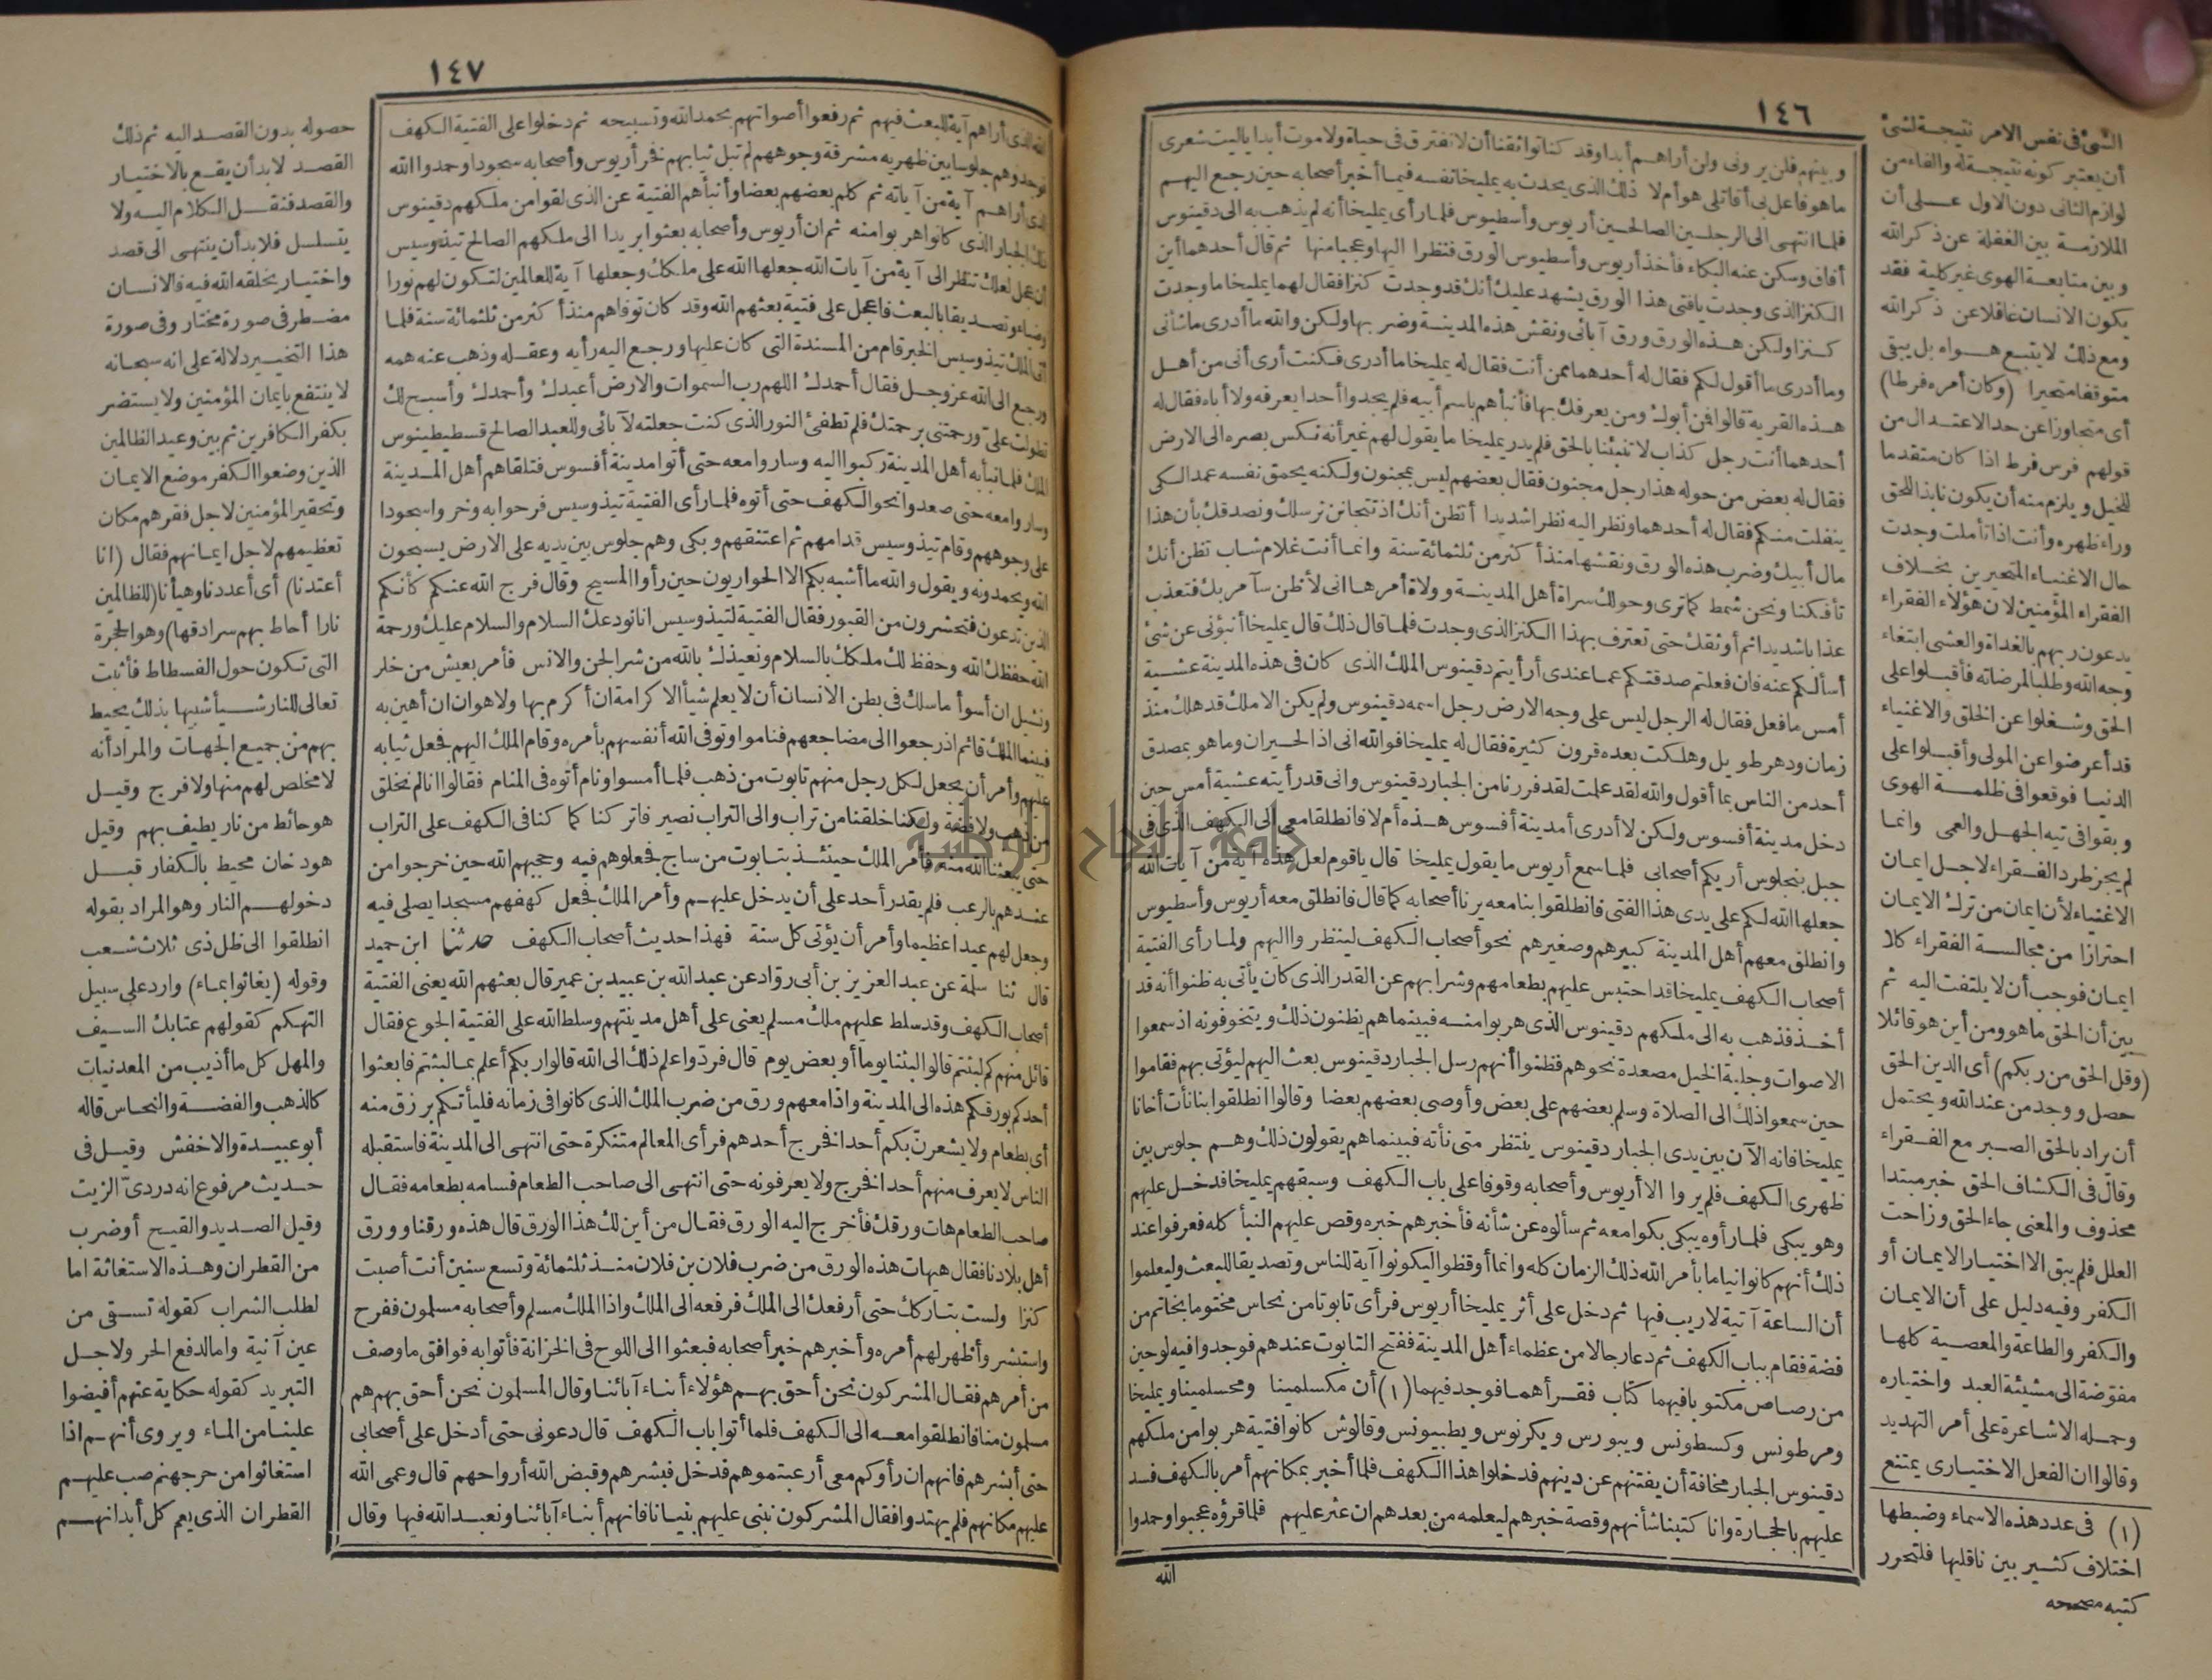 ١٤٦
وبينهم فلن يرونى ولن أراهم أبدا وقد كنا تواثقنا أن لا نفترق فى حياة ولا موت أبدا ياليت شعرى
ما هو فاعل بى أقاتلى هو أم لا ذلك الذى يحدث به يمليخا نفسه فيما أخبر أصحابه حين رجع اليهم
فلما انتهى الى الرجلين الصالحين أريوس وأسطيوس فلما رأى يمليخا أنه لم يذهب به الى دقينوس
أفاق وسكن عنه البكاء فأخذ أريوس وأسطيوس الورق فنظرا اليها وعجبا منها ثم قال أحدهما أين
الكنز الذى وجدت يا فتى هذا الورق يشهد عليك أنك قد وجدت كنزا فقال لهما يمليخا ما وجدت
كنزا ولكن هذه الورق ورق آبائى ونقش هذه المدينة وضربها ولكن والله ما أدرى ما شأنى
وما أدرى ما أقول لكم فقال له أحدهما ممن أنت فقال له يمليخا ما أدرى فكنت أرى أنى من أهل
هذه القرية قالوا فمن أبوك ومن يعرفك بها فأنبأهم باسم أبيه فلم يجدوا أحدا يعرفه ولا أباه فقال له
أحدهما أنت رجل كذاب لا تنبئنا بالحق فلم يدر يمليخا ما يقول لهم غير أنه نكس بصره الى الارض
فقال له بعض من حوله هذا رجل مجنون فقال بعضهم ليس بمجنون ولكنه يحمق نفسه عمدا لكى
ينفلت منكم فقال له أحدهما ونظر اليه نظرا شديدا أتظن أنك اذ تتجانن نرسلك ونصدقك بأن هذا
مال أبيك وضرب هذه الورق ونقشها منذ أكثر من ثلثمائة سنة وانما أنت غلام شاب تظن أنك
تأفكنا ونحن شمط كما ترى وحولك سراة أهل المدينة وولاة أمرها انى لأظن سآمر بك فتعذب
عذابا شديدا ثم أوثقك حتى تعترف بهذا الكنز الذى وجدت فلما قال ذلك قال يمليخا أنبؤنى عن شئ
أسألكم عنه فان فعلتم صدقتكم عما عندى أرأيتم دقينوس الملك الذى كان فى هذه المدينة عشية
أمس ما فعل فقال له الرجل ليس على وجه الارض رجل اسمه دقينوس ولم يكن الا ملك قد هلك منذ
زمان ودهر طويل وهلكت بعده قرون كثيرة فقال له يمليخا فوالله انى اذا لحيران وما هو بمصدق
أحد من الناس بما أقول والله لقد علمت لقد فررنا من الجبار دقينوس وانى قد رأيته عشية أمس حين
دخل مدينة أفسوس ولكن لا أدرى أمدينة أفسوس هذه أم لا فانطلقا معى الى الكهف الذى فى
جبل بنجلوس أريكم أصحابى فلما سمع أريوس ما يقول يمليخا قال يا قوم لعل هذه آية من آيات الله
جعلها الله لكم على يدى هذا الفتى فانطلقوا بنا معه يرنا أصحابه كما قال فانطلق معه أريوس وأسطيوس
وانطلق معهم أهل المدينة كبيرهم وصغيرهم نحو أصحاب الكهف لينظروا اليهم ولما رأى الفتية
أصحاب الكهف يمليخا قد احتبس عليهم بطعامهم وشرابهم عن القدر الذى كان يأتى به ظنوا أنه قد
أخذ فذهب به الى ملكهم دقينوس الذى هربوا منه فبينما هم يظنون ذلك ويتخوفونه اذ سمعوا
الاصوات وجلبة الخيل مصعدة نحوهم فظنوا أنهم رسل الجبار دقينوس بعث اليهم ليؤتى بهم فقاموا
حين سمعوا ذلك الى الصلاة وسلم بعضهم على بعض وأوصى بعضهم بعضا وقالوا انطلقوا بنا نأت أخانا
يمليخا فانه الآن بين يدى الجبار دقينوس ينتظر متى نأته فبينما هم يقولون ذلك وهم جلوس بين
ظهرى الكهف فلم يروا الا أريوس وأصحابه وقوفا على باب الكهف وسبقهم يمليخا فدخل عليهم
وهو يبكى فلما رأوه يبكى بكوا معه ثم سألوه عن شأنه فأخبرهم خبره وقص عليهم النبأ كله فعرفوا عند
ذلك أنهم كانوا نياما بأمر الله ذلك الزمان كله وانما أوقظوا ليكونوا آية للناس وتصديقا للبعث وليعلموا
أن الساعة آتية لا ريب فيها ثم دخل على أثر يمليخا أريوس فرأى تابوتا من نحاس مختوما بخاتم من
فضة فقام بباب الكهف ثم دعا رجالا من عظماء أهل المدينة ففتح التابوت عندهم فوجدوا فيه لوحين
من رصاص مكتوبا فيهما كتاب فقرأهما فوجد فيهما (١) أن مكسلمينا ومحسلمينا ويمليخا
ومرطونس وكسطونس ويبورس ويكرنوس ويطبيونس وقالوش كانوا فتية هربوا من ملكهم
دقينوس الجبار مخافة أن يفتنهم عن دينهم فدخلوا هذا الكهف فلما أخبر بمكانهم أمر بالكهف فسد
عليهم بالحجارة وانا كتبنا شأنهم وقصة خبرهم ليعلمه من بعدهم ان عثر عليهم فلما قرؤه عجبوا وحمدوا
الله
الشئ فى نفس الامر نتيجة لشئ
أن يعتبر كونه نتيجة له والفاء من
لوازم الثانى دون الاول على أن
الملازمة بين الغفلة عن ذكر الله
وبين متابعة الهوى غير كلية فقد
يكون الانسان غافلا عن ذكر الله
ومع ذلك لا يتبع هواه بل يبقى
متوقفا متحيرا (وكان أمره فرطا)
أى متجاوزا عن حد الاعتدال من
قولهم فرس فرط اذا كان متقدما
للخيل ويلزم منه أن يكون نابذا للحق
وراء ظهره وأنت اذا تأملت وجدت
حال الاغنياء المتحيرين بخلاف
الفقراء المؤمنين لان هؤلاء الفقراء
يدعون ربهم بالغداة والعشى ابتغاء
وجه الله وطلبا لمرضاته فأقبلوا على
الحق وشغلوا عن الخلق والاغنياء
قد أعرضوا عن المولى وأقبلوا على
الدنيا فوقعوا فى ظلمة الهوى
وبقوا فى تيه الجهل والعمى وانما
لم يجز طرد الفقراء لاجل ايمان
الاغنياء لأن ايمان من ترك الايمان
احترازا من مجالسة الفقراء كلا
ايمان فوجب أن لا يلتفت اليه ثم
بين أن الحق ما هو ومن أين هو قائلا
(وقل الحق من ربكم) أى الدين الحق
حصل ووجد من عند الله ويحتمل
أن يراد بالحق الصبر مع الفقراء
وقال فى الكشاف الحق خبر مبتدا
محذوف والمعنى جاء الحق وزاحت
العلل فلم يبق الا اختيار الايمان أو
الكفر وفيه دليل على أن الايمان
والكفر والطاعة والمعصية كلها
مفوّضة الى مشيئة العبد واختياره
وحمله الاشاعرة على أمر التهديد
وقالوا ان الفعل الاختيارى يمتنع
(١) فى عدد هذه الاسماء وضبطها
اختلاف كثير بين ناقليها فلتحرر
كتبه مصححه
١٤٧
الله الذى أراهم آية للبعث فيهم ثم رفعوا أصواتهم بحمد الله وتسبيحه ثم دخلوا على الفتية الكهف
فوجدوهم جلوسا بين ظهريه مشرقة وجوههم لم تبل ثيابهم فخر أريوس وأصحابه سجودا وحمدوا الله
الذى أراهم آية من آياته ثم كلم بعضهم بعضا وأنبأهم الفتية عن الذى لقوا من ملكهم دقينوس
ذلك الجبار الذى كانوا هربوا منه ثم ان أريوس وأصحابه بعثوا بريدا الى ملكهم الصالح تيذوسيس
أن عجل لعلك تنظر الى آية من آيات الله جعلها الله على ملكك وجعلها آية للعالمين لتكون لهم نورا
وضياء وتصديقا بالبعث فاعجل على فتية بعثهم الله وقد كان توفاهم منذ أكثر من ثلثمائة سنة فلما
أتى الملك تيذوسيس الخبر قام من المسندة التى كان عليها ورجع اليه رأيه وعقله وذهب عنه همه
ورجع الى الله عز وجل فقال أحمدك اللهم رب السموات والارض أعبدك وأحمدك وأسبح لك
تطولت علىّ ورحمتنى برحمتك فلم تطفئ النور الذى كنت جعلته لآبائى وللعبد الصالح قسطيطينوس
الملك فلما نبأ به أهل المدينة ركبوا اليه وساروا معه حتى أتوا مدينة أفسوس فتلقاهم أهل المدينة
وساروا معه حتى صعدوا نحو الكهف حتى أتوه فلما رأى الفتية تيذوسيس فرحوا به وخروا سجودا
على وجوههم وقام تيذوسيس قدامهم ثم اعتنقهم وبكى وهم جلوس بين يديه على الارض يسبحون
الله ويحمدونه ويقول والله ما أشبه بكم الا الحواريون حين رأوا المسيح وقال فرج الله عنكم كأنكم
الذين تدعون فتحشرون من القبور فقال الفتية لتيذوسيس انا نودعك السلام والسلام عليك ورحمة
الله حفظك الله وحفظ لك ملكك بالسلام ونعيذك بالله من شر الجن والانس فأمر بعيش من خلر
ونشيل ان أسوأ ما سلك فى بطن الانسان أن لا يعلم شيأ الا كرامة ان أكرم بها ولا هوان ان أهين به
فبينما الملك قائم اذ رجعوا الى مضاجعهم فناموا وتوفى الله أنفسهم بأمره وقام الملك اليهم فجعل ثيابه
عليهم وأمر أن يجعل لكل رجل منهم تابوت من ذهب فلما أمسوا ونام أتوه فى المنام فقالوا انا لم نخلق
من ذهب ولا فضة ولكنا خلقنا من تراب والى التراب نصير فاتركنا كما كنا فى الكهف على التراب
حتى يبعثنا الله منه فأمر الملك حينئذ بتابوت من ساج فجعلوهم فيه وحجبهم الله حين خرجوا من
عندهم بالرعب فلم يقدر أحد على أن يدخل عليهم وأمر الملك فجعل كهفهم مسجدا يصلى فيه
وجعل لهم عيدا عظيما وأمر أن يؤتى كل سنة فهذا حديث أصحاب الكهف حدثنا ابن حميد
قال ثنا سلمة عن عبد العزيز بن أبى رواد عن عبد الله بن عبيد بن عمير قال بعثهم الله يعنى الفتية
أصحاب الكهف وقد سلط عليهم ملك مسلم يعنى على أهل مدينتهم وسلط الله على الفتية الجوع فقال
قائل منهم كم لبثتم قالوا لبثنا يوما أو بعض يوم قال فردّوا علم ذلك الى الله قالوا ربكم أعلم بما لبثتم فابعثوا
أحدكم بورقكم هذه الى المدينة واذا معهم ورق من ضرب الملك الذى كانوا فى زمانه فليأتكم برزق منه
أى بطعام ولا يشعرنّ بكم أحدا فخرج أحدهم فرأى المعالم متنكرة حتى انتهى الى المدينة فاستقبله
الناس لا يعرف منهم أحدا فخرج ولا يعرفونه حتى انتهى الى صاحب الطعام فسامه بطعامه فقال
صاحب الطعام هات ورقك فأخرج اليه الورق فقال من أين لك هذا الورق قال هذه ورقنا وورق
أهل بلادنا فقال هيهات هذه الورق من ضرب فلان بن فلان منذ ثلثمائة وتسع سنين أنت أصبت
كنزا ولست بتاركك حتى أرفعك الى الملك فرفعه الى الملك واذا الملك مسلم وأصحابه مسلمون ففرح
واستبشر وأظهر لهم أمره وأخبرهم خبر أصحابه فبعثوا الى اللوح فى الخزانة فأتوا به فوافق ما وصف
من أمرهم فقال المشركون نحن أحق بهم هؤلاء أبناء آبائنا وقال المسلمون نحن أحق بهم هم
مسلمون منا فانطلقوا معه الى الكهف فلما أتوا باب الكهف قال دعونى حتى أدخل على أصحابى
حتى أبشرهم فانهم ان رأوكم معى أرعبتموهم فدخل فبشرهم وقبض الله أرواحهم قال وعمى الله
عليهم مكانهم فلم يهتدوا فقال المشركون نبنى عليهم بنيانا فانهم أبناء آبائنا ونعبد الله فيها وقال
حصوله بدون القصد اليه ثم ذلك
القصد لا بد أن يقع بالاختيار
والقصد فننقل الكلام اليه ولا
يتسلسل فلا بد أن ينتهى الى قصد
واختيار يخلقه الله فيه فالانسان
مضطر فى صورة مختار وفى صورة
هذا التخيير دلالة على انه سبحانه
لا ينتفع بايمان المؤمنين ولا يستضر
بكفر الكافرين ثم بين وعيد الظالمين
الذين وضعوا الكفر موضع الايمان
وتحقير المؤمنين لاجل فقرهم مكان
تعظيمهم لاجل ايمانهم فقال (انا
أعتدنا) أى أعددنا وهيأنا (للظالمين
نارا أحاط بهم سرادقها) وهو الحجرة
التى تكون حول الفسطاط فأثبت
تعالى للنار شيأ شبيها بذلك يحيط
بهم من جميع الجهات والمراد أنه
لا مخلص لهم منها ولا فرج وقيل
هو حائط من نار يطيف بهم وقيل
هو دخان محيط بالكفار قبل
دخولهم النار وهو المراد بقوله
انطلقوا الى ظل ذى ثلاث شعب
وقوله (يغاثوا بماء) وارد على سبيل
التهكم كقولهم عتابك السيف
والمهل كل ما أذيب من المعدنيات
كالذهب والفضة والنحاس قاله
أبو عبيدة والاخفش وقيل فى
حديث مرفوع انه دردىّ الزيت
وقيل الصديد والقيح أو ضرب
من القطران وهذه الاستغاثة اما
لطلب الشراب كقوله تسقى من
عين آنية واما لدفع الحر ولاجل
التبريد كقوله حكاية عنهم أفيضوا
علينا من الماء ويروى أنهم اذا
استغاثوا من حر جهنم صب عليهم
القطران الذى يعم كل أبدانهم
جامعة النجاح الوطنية